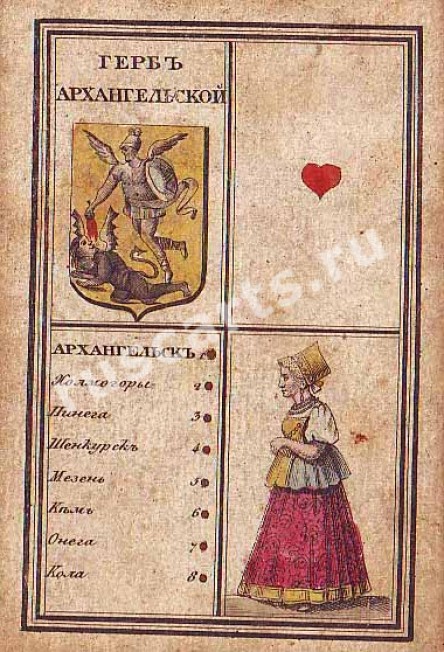 ГЕРБЪ
АРХАНГЕЛЬСКОЙ
АРХАНГЕЛЬСКЪ 1
Холмогоры 2
Пинега 3
Шенкурскъ 4
Мезень 5
Кѣмь 6
Онега 7
Кола 8
ruscarts.ru